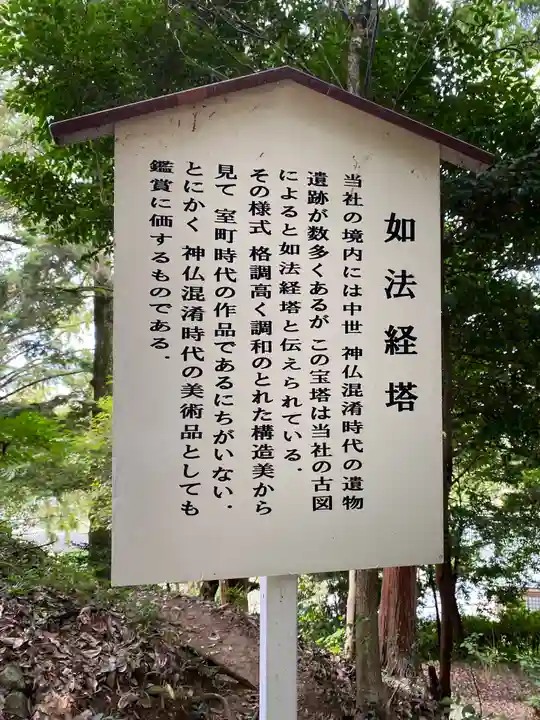 如法経塔
当社の境内には中世 神仏混淆時代の遺物
遺跡が数多くあるが この宝塔は当社の古図
によると如法経塔と伝えられている.
その様式 格調高く調和のとれた構造美から
見て 室町時代の作品であるにちがいない.
とにかく 神仏混淆時代の美術品としても
鑑賞に価するものである.